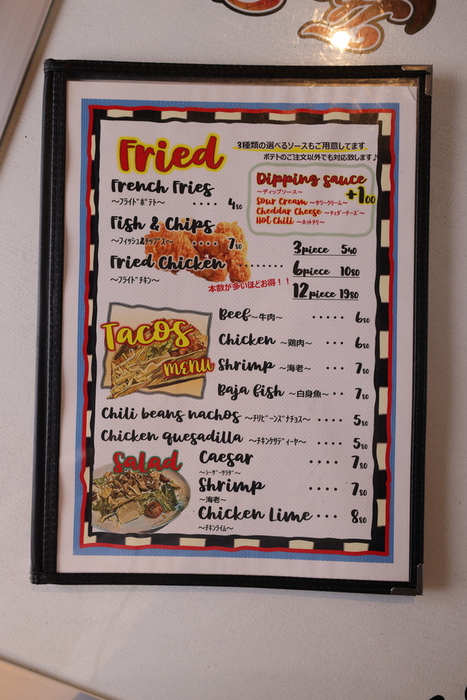 Fried
3種類の選べるソースもご用意してます
ポテトのご注文以外でも対応致します♪
French Fries
〜フライドポテト〜 ････ 480
Dipping sauce
〜ディップソース〜 +100
Sour Cream 〜サワークリーム〜
Cheddar Cheese 〜チェダーチーズ〜
Hot Chili 〜ホットチリ〜
Fish & Chips
〜フィッシュ&チップス〜 ････ 780
Fried Chicken ････････
〜フライドチキン〜
3piece 540
6piece 1080
12piece 1980
本数が多いほどお得！！
Tacos
menu
Beef〜牛肉〜 ･････ 680
Chicken 〜鶏肉〜 ････ 680
Shrimp 〜海老〜 ････ 780
Baja fish 〜白身魚〜 ･･ 780
Chili beans nachos 〜チリビーンズナチョス〜 ････ 580
Chicken quesadilla 〜チキンケサディーヤ〜 ････ 580
Salad
Caesar ････ 780
〜シーザーサラダ〜
Shrimp ････ 780
〜海老〜
Chicken Lime ･･･ 880
〜チキンライム〜